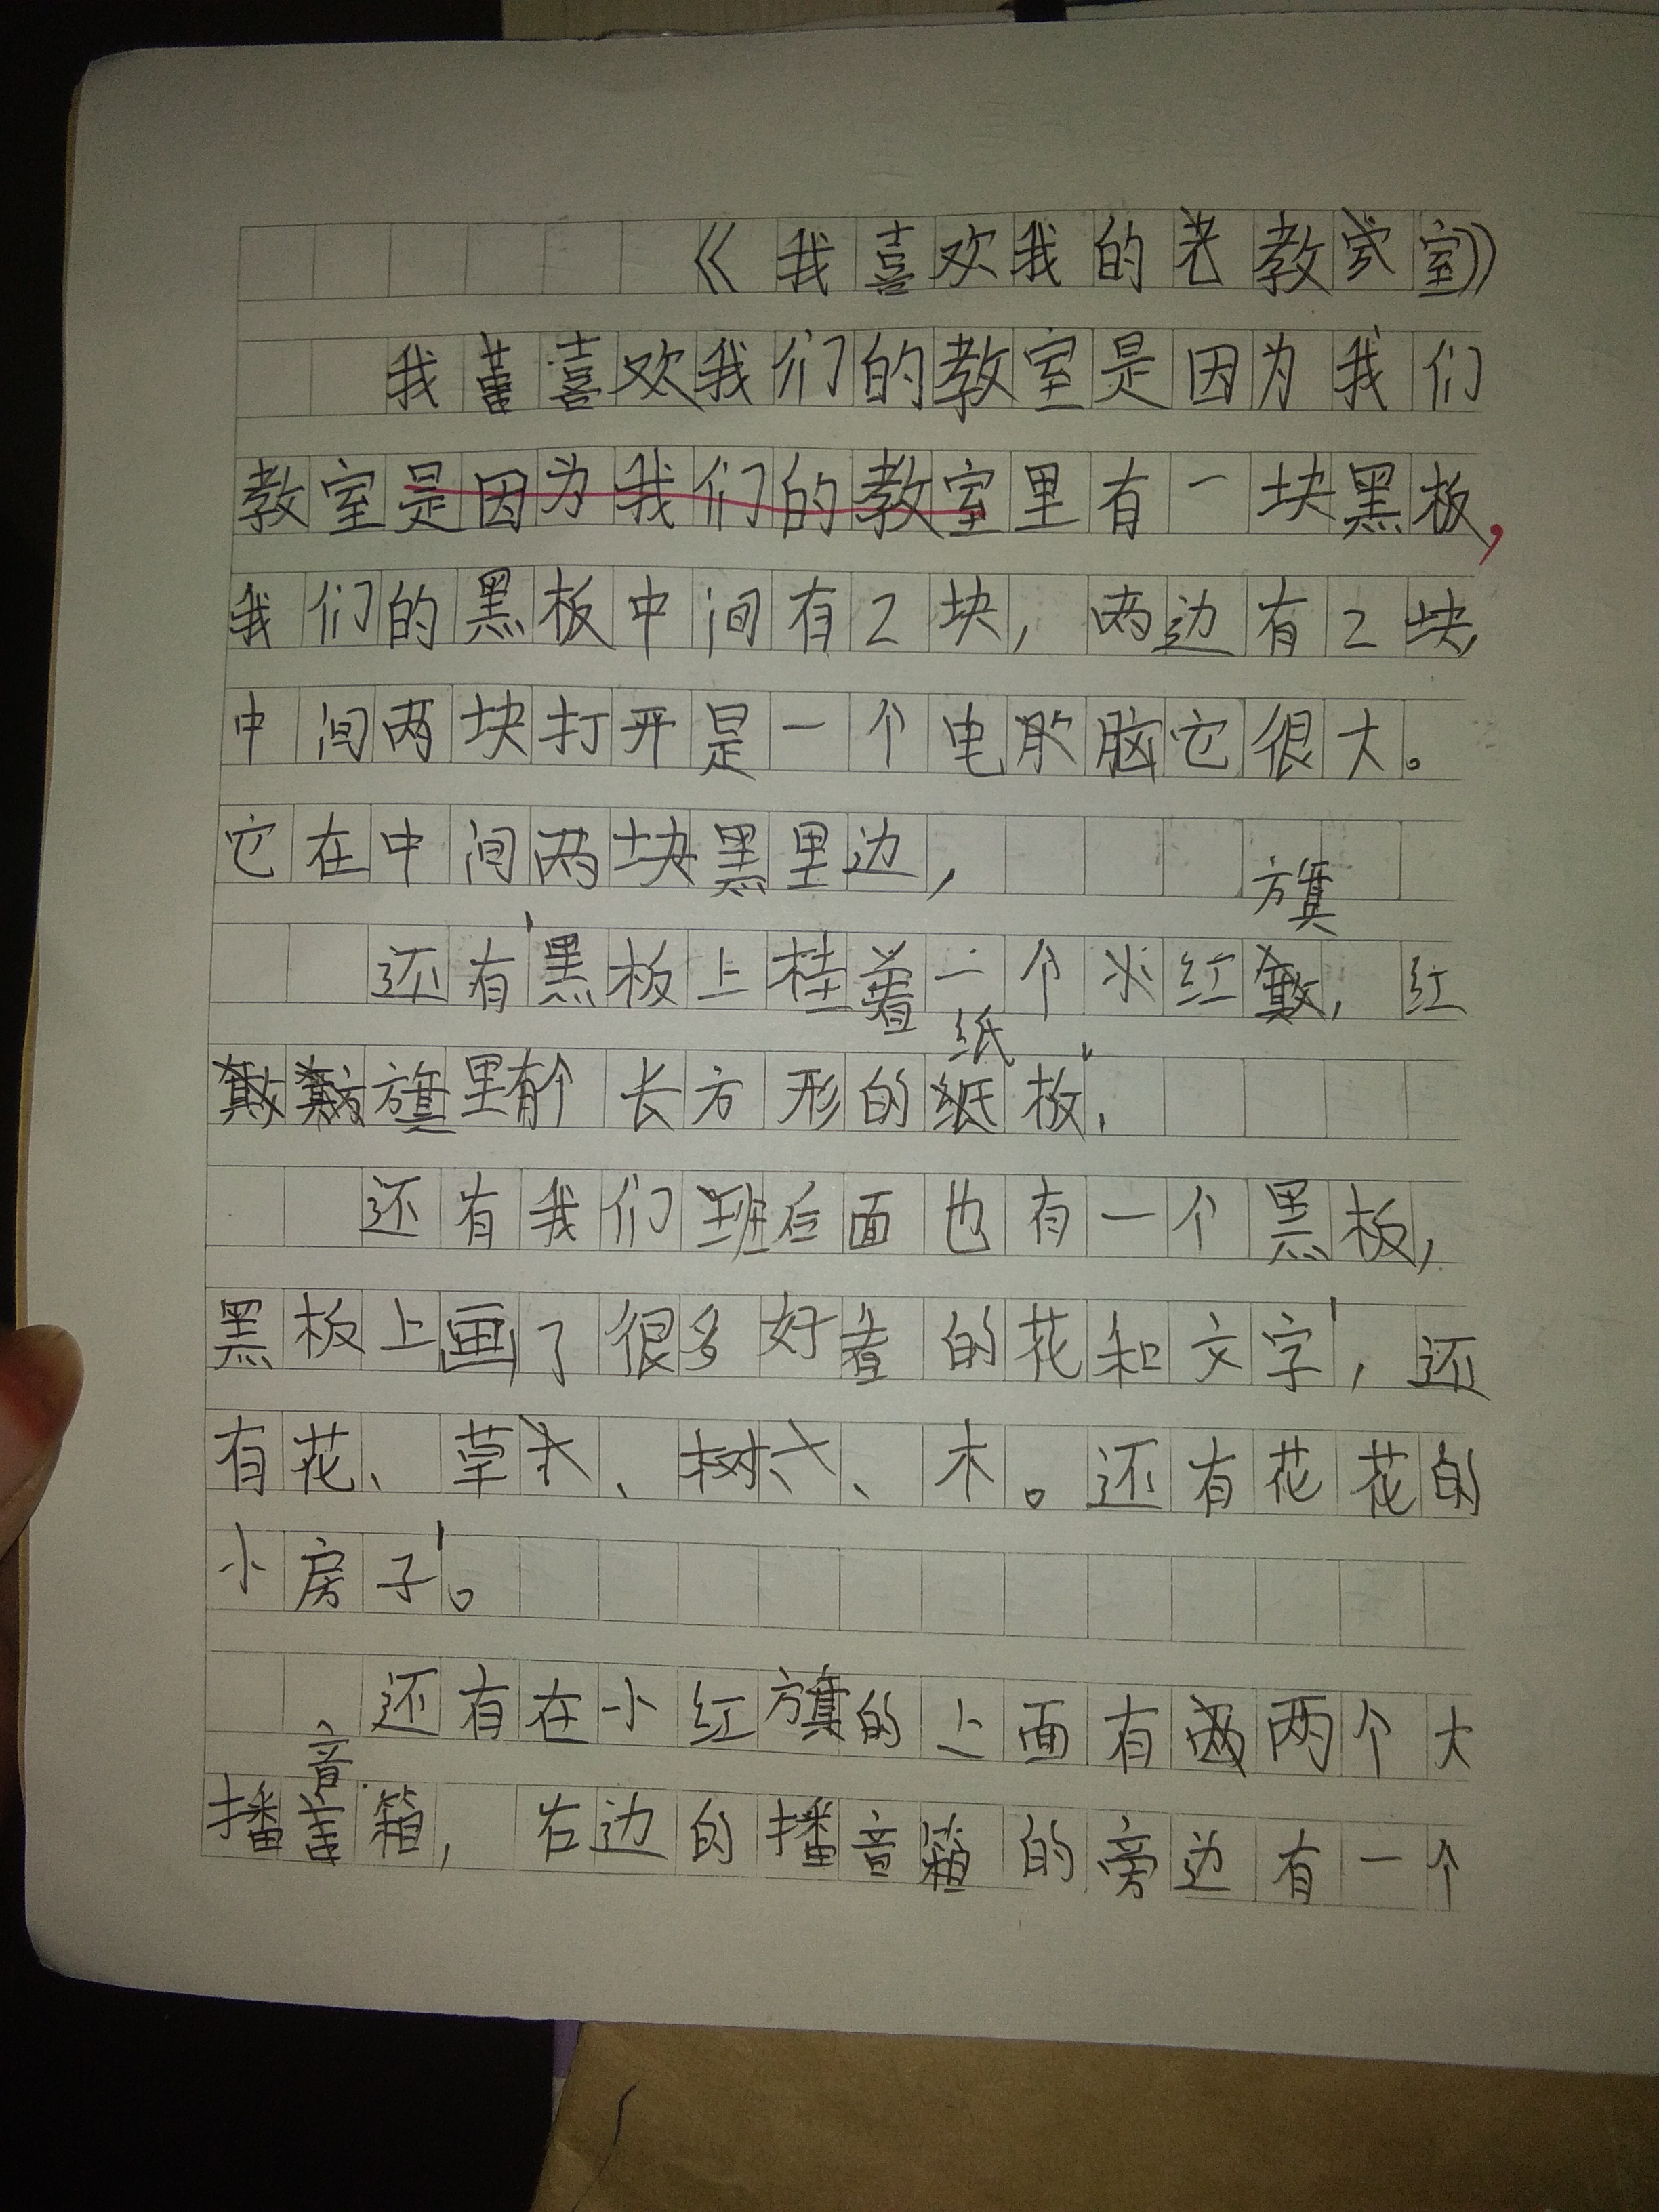 《我喜欢我的教室》
我喜欢我们的教室是因为我们
教室是因为我们的教室里有一块黑板，
我们的黑板中间有2块，两边有2块，
中间两块打开是一个电脑它很大。
它在中间两块黑里边，
旗
还有黑板上桂着一个小红，红
纸
旗里有个长方形的板，
还有我们班后面也有一个黑板，
黑板上画了很多好看的花和文字，还
有花、草、树、木。还有花花的
小房子。
还有在小红旗的上面有两个大
音
播箱，右边的播音箱的旁边有一个